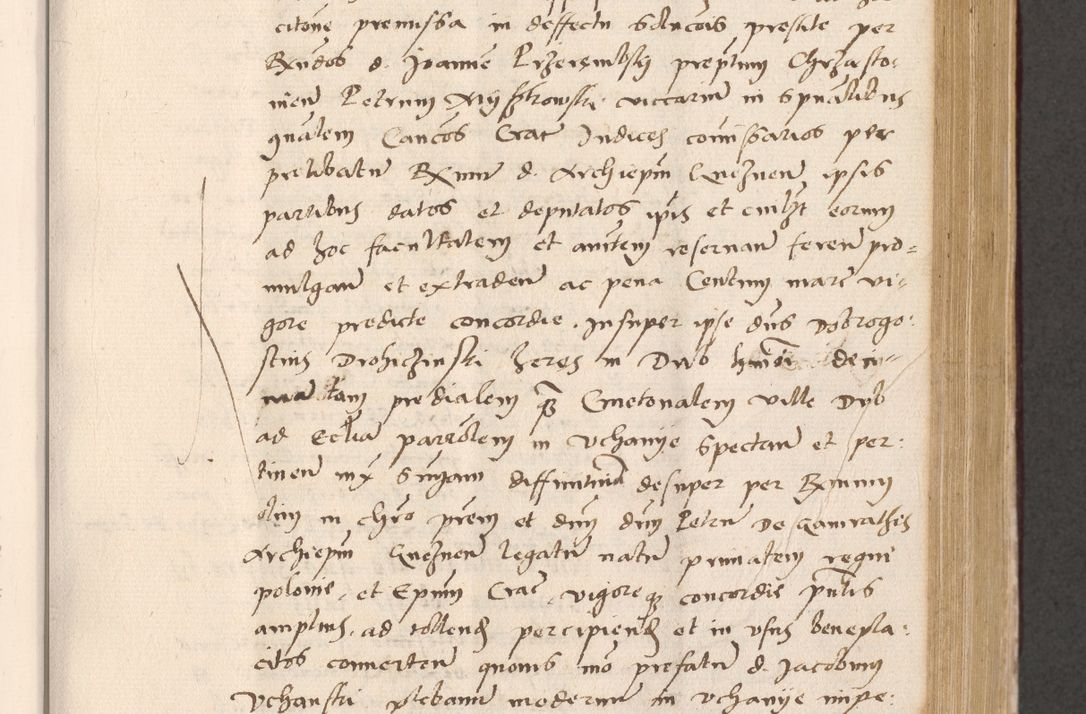 citone premissa in deffectu soluc̃ois prestite per
Rxndos d. Joanne Przerembsky preptum Chrzasto:
inen̄ Petrum Myszkowski viccarium in spũalibus
gnãlem Cancõs Crac̄ Judices comissarios per
prelibatū Rxmū d. Archiepm̄ Gneznen̄ ipsis
partibus datos et deputatos ip̄is et cuilȝt eorum
ad hoc facultatem et aucttem reseruan̄ feren̄ pro=
mulgan̄ et extraden̄ ac pena Centum marc̄ vi=
gore predicte concordie. Insuper ipse dn̄s Dobrogo:
stius Drohiczinski heres in Dub deci=
mam predialem Cmetonalem ville Dub
ad Eccliā parrõlem in Vchanye spectan̄ et per:
tinen̄ iux̄ diffinitiuā desuper per Rxmum
olim in chrõ prem̄ et dnm̄ dnm̄ Petrū de Gamrathis
Archiepm̄ Gneznen̄ legatū natū primatem regni
polonie, et Epum̄ Crac̄, vigoreqȝ concordie pn̄tis
amplius, ad tollend̄ percipiend̄ et in vsus benepla:
citos conuerten̄ quouis mõ prefatū d. Jacobum
Vchanski plebanū modernū in Vchanye impe: